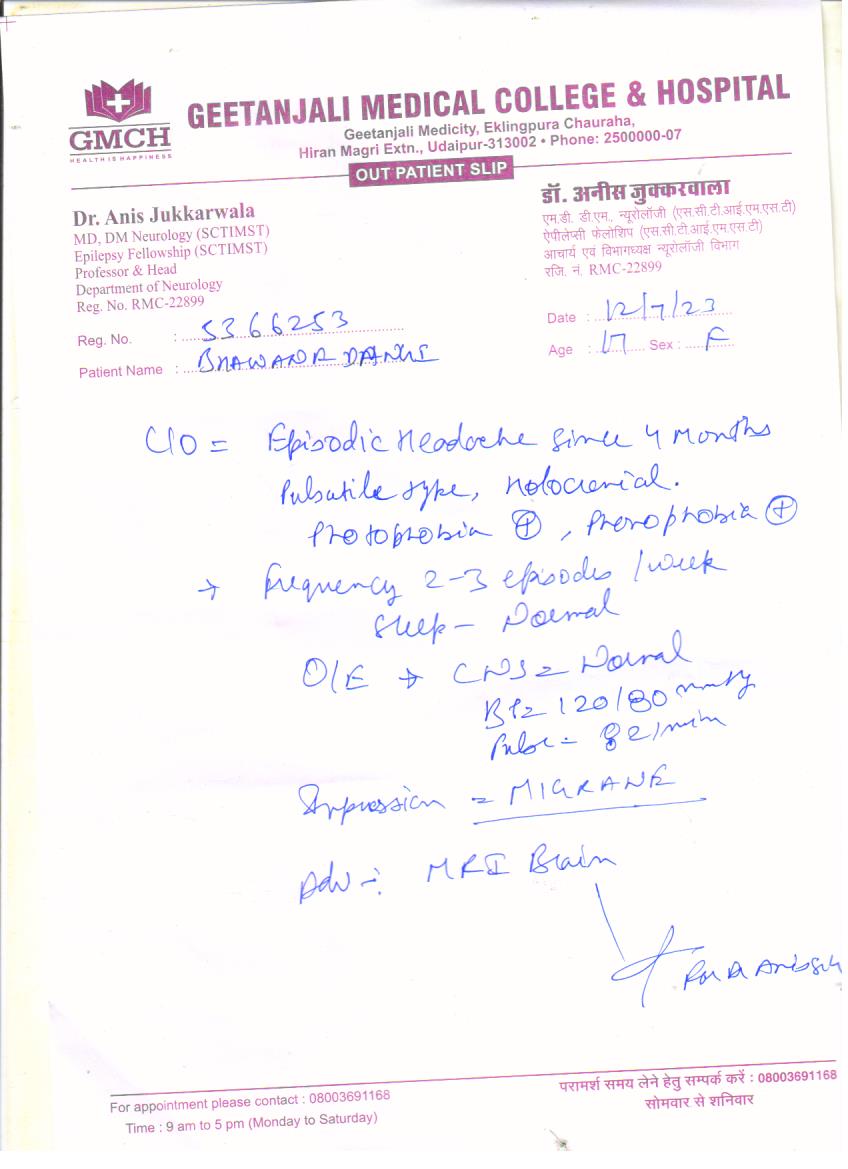 GMCH
HEALTH IS HAPPINESS
GEETANJALI MEDICAL COLLEGE & HOSPITAL
Geetanjali Medicity, Eklingpura Chauraha,
Hiran Magri Extn., Udaipur-313002 • Phone: 2500000-07
OUT PATIENT SLIP
Dr. Anis Jukkarwala
MD, DM Neurology (SCTIMST)
Epilepsy Fellowship (SCTIMST)
Professor & Head
Department of Neurology
Reg. No. RMC-22899
डॉ. अनीस जुक्करवाला
एम.डी. डी.एम., न्यूरोलॉजी (एस.सी.टी.आई.एम.एस.टी)
ऐपीलेप्सी फेलोशिप (एस.सी.टी.आई.एम.एस.टी)
आचार्य एवं विभागध्यक्ष न्यूरोलॉजी विभाग
रजि. नं. RMC-22899
Reg. No. : 5366253
Patient Name : BHAWANA DANGI
Date : 12/7/23
Age : 17 Sex : F
C/O = Episodic Headache since 4 months
Pulsatile type, Holocranial.
Photophobia ⊕, Phonophobia ⊕
→ Frequency 2-3 episodes / week
Sleep - Normal
O/E → CNS = Normal
BP = 120/80 mmHg
Pulse = 82/min
Impression = MIGRANE
Adv :- MRI Brain
Anis Sir
For appointment please contact : 08003691168
Time : 9 am to 5 pm (Monday to Saturday)
परामर्श समय लेने हेतु सम्पर्क करें : 08003691168
सोमवार से शनिवार